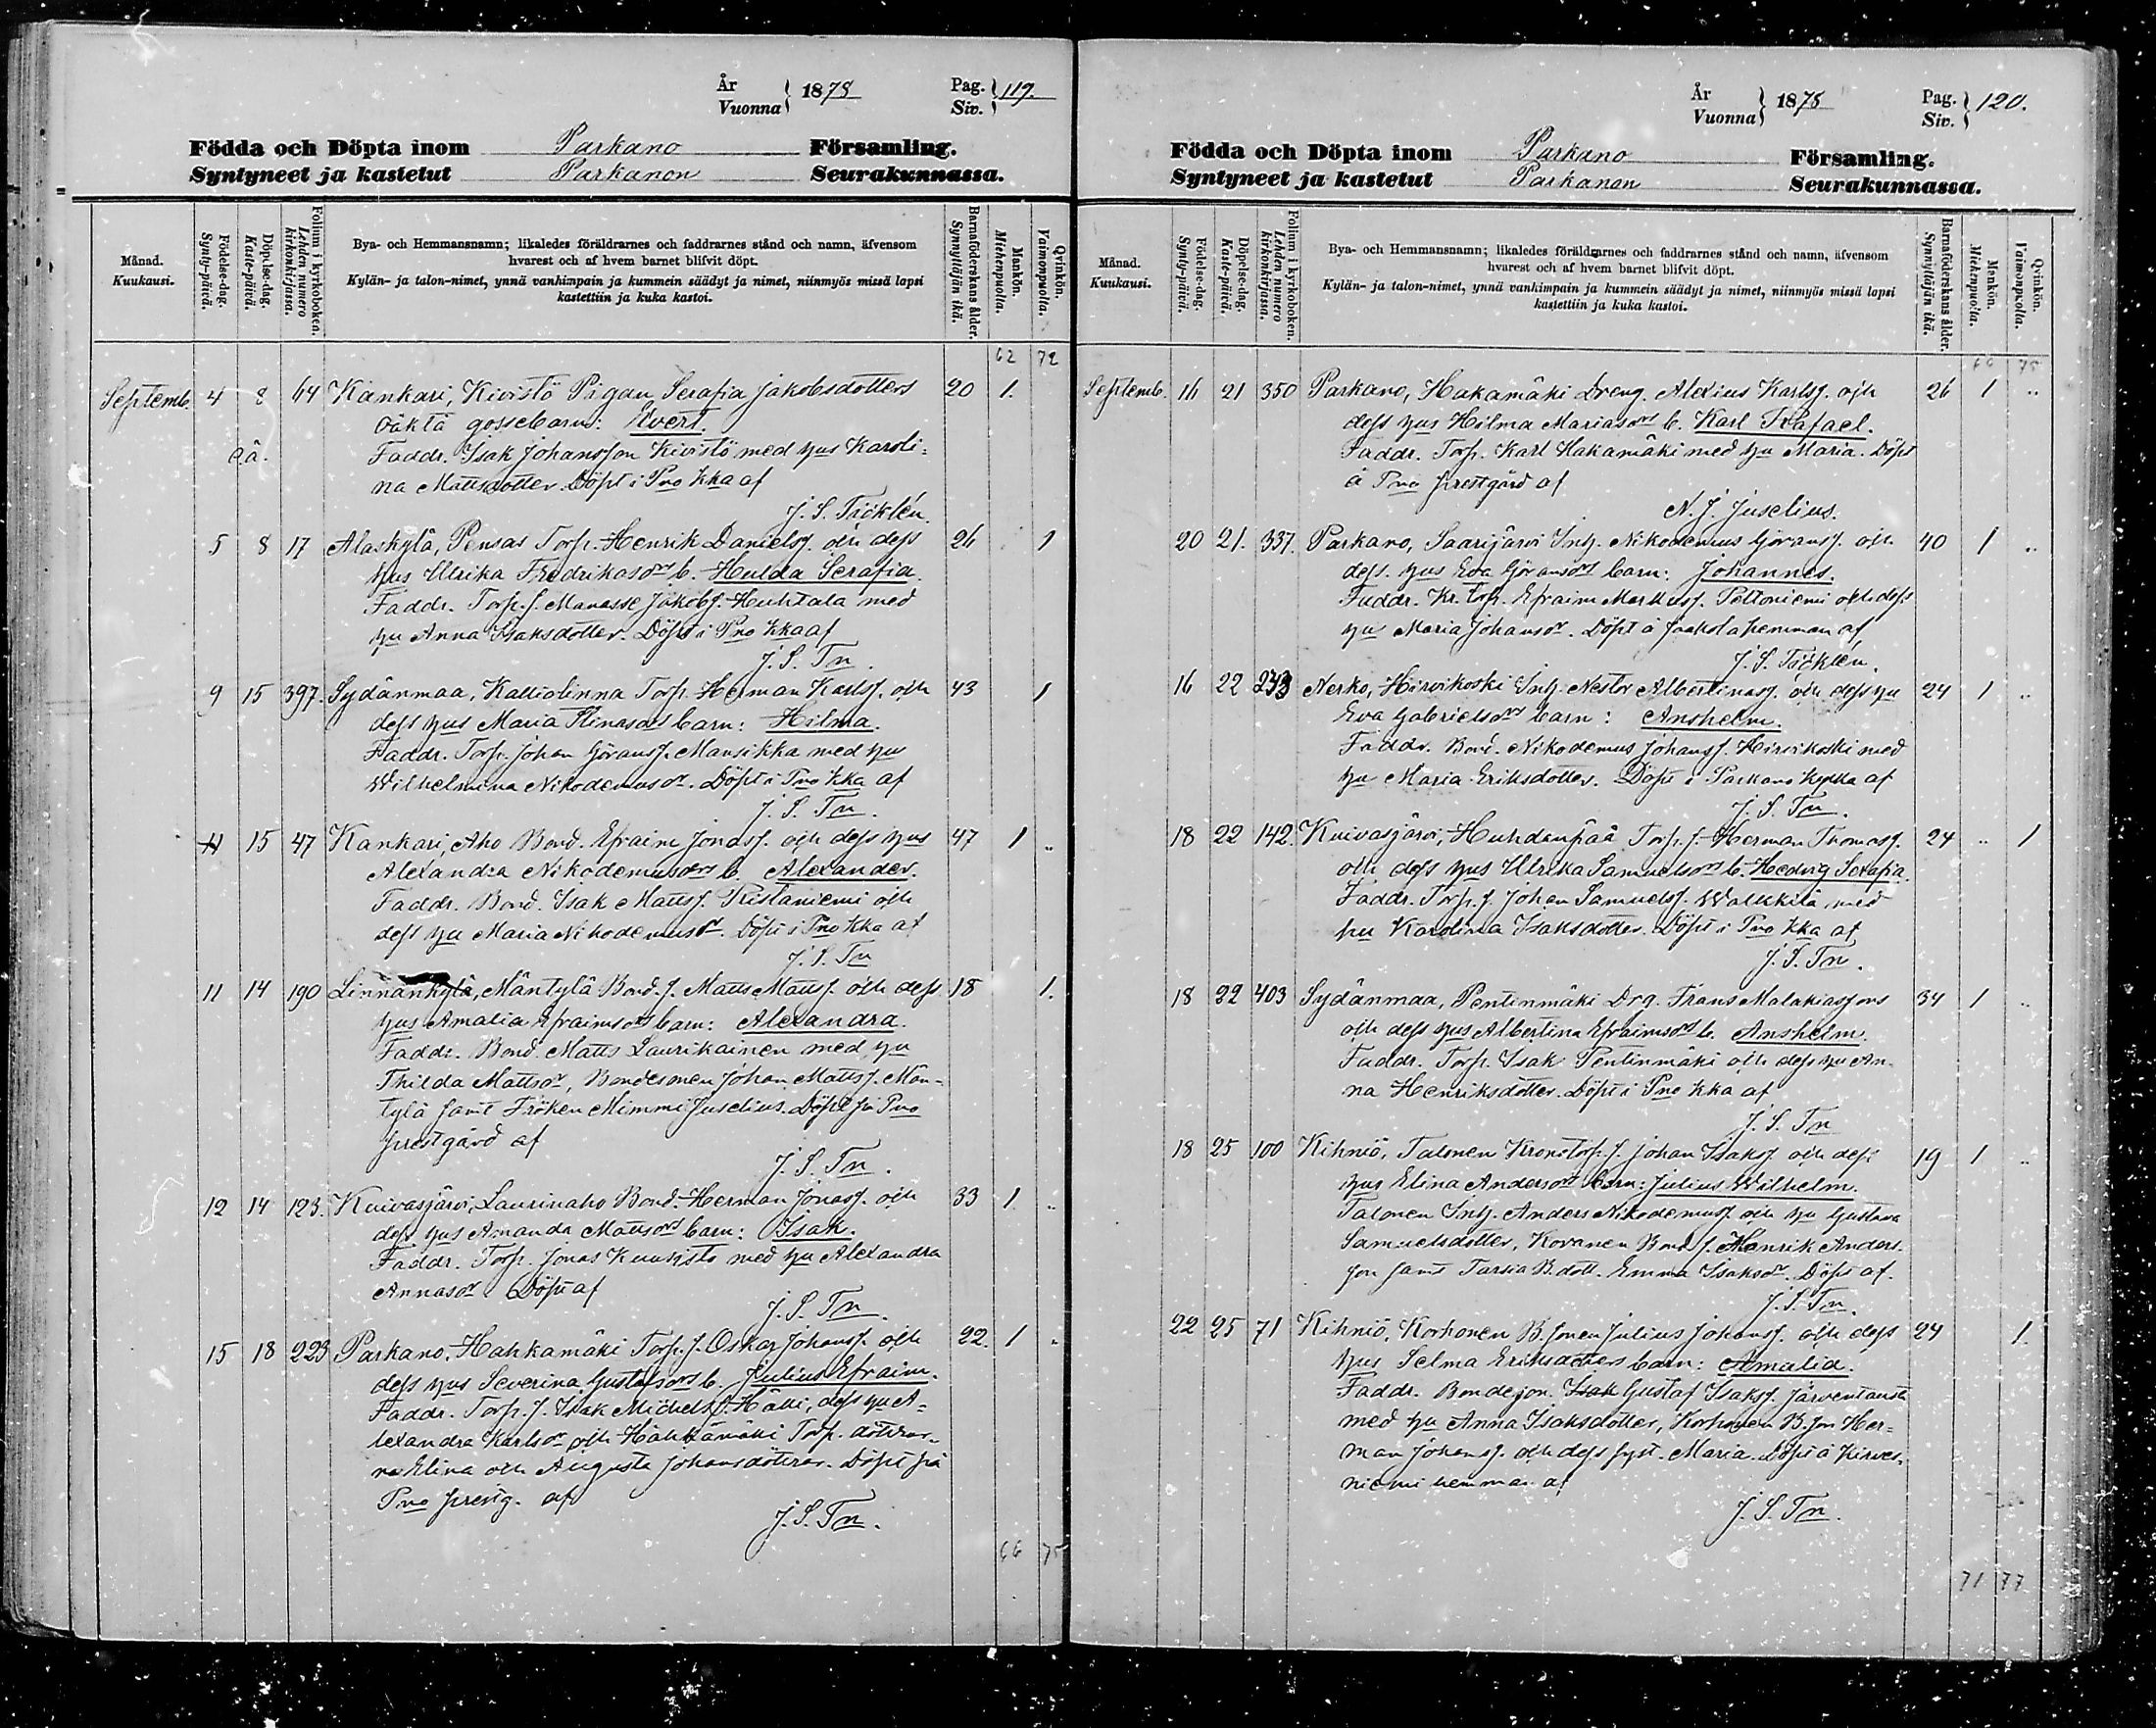 År
Vuonna } 1878
Pag.
Siv. } 119.
Födda och Döpta inom Parkano Församling.
Syntyneet ja kastetut Parkanon Seurakunnassa.
Månad.
Kuukausi.
Födelse-dag.
Synty-päivä.
Döpelse-dag.
Kaste-päivä.
Folium i kyrkoboken.
Lehden numero kirkonkirjassa.
Bya- och Hemmansnamn; likaledes föräldrarnes och faddrarnes stånd och namn, äfvensom
hvarest och af hvem barnet blifvit döpt.
Kylän- ja talon-nimet, ynnä vanhimpain ja kummein säädyt ja nimet, niinmyös missä lapsi
kastettiin ja kuka kastoi.
Barnaföderskans ålder.
Synnyttäjän ikä.
Mankön.
Miehenpuolta.
Qvinkön.
Vaimonpuolta.
62 72
Septemb. 4 8 64 Kankari, Kivistö Pigan Serafia Jakobsdotters 20 1.
oäkta gossebarn: Evert.
o.ä. Faddr. Isak Johansson Kivistö med hus Karoli-
na Mattsdotter. Döpt i Pno kka af
J. S. Tröklén.
5 8 17 Alaskylä, Pensas Torp. Henrik Danielsf. och dess 26 1
hus Ulrika Fredrikasdr b. Hulda Serafia.
Faddr. Torp. f. Manasse Jakobsf. Huhtala med
hu Anna Isaksdotter. Döpt i Pno kka af
J. S. Tn.
9 15 397. Sydänmaa, Kalliolinna Torp. Herman Karlsf. och 43 1
dess hus Maria Elinasdrs barn: Hilma.
Faddr. Torp. Johan Göransf. Mansikka med hu
Wilhelmina Nikodemusdr. Döpt i Pno kka af
J. S. Tn.
11 15 47 Kankari, Aho Bond. Efraim Jonasf. och dess hus 47 1 "
Alexandra Nikodemusdrs b. Alexander.
Faddr. Bond. Isak Mattsf. Ristaniemi och
dess hu Maria Nikodemusdr. Döpt i Pno kka af
J. S. Tn
11 14 190 Linnankylä, Mäntylä Bond. f. Matts Mattsf. och dess 18 1.
hus Amalia Efraimsdrs barn: Alexandra.
Faddr. Bond. Matts Laurikainen med hu
Thilda Mattsdr, Bondesonen Johan Mattsf. Män-
tylä samt Fröken Mimmi Juselius. Döpt på Pno
prestgård af
J. S. Tn.
12 14 123. Kuivasjärvi, Laurinaho Bond. Herman Jonasf. och 33 1 "
dess hus Amanda Mattsdrs barn: Isak.
Faddr. Torp. Jonas Kuusisto med hu Alexandra
Annasdr. Döpt af
J. S. Tn.
15 18 223 Parkano, Hahkamäki Torp. f. Oskar Johansf. och 22. 1 "
dess hus Severina Gustafsdrs b. Julius Efraim.
Faddr. Torp. f. Isak Michelsf. Hätti, dess hu A-
lexandra Karlsdr och Hahkamäki Torp. döttrar-
na Elina och Augusta Johansdöttrar. Döpt på
Pno prestg. af
J. S. Tn.
66 75
År
Vuonna } 1878
Pag.
Siv. } 120.
Födda och Döpta inom Parkano Församling.
Syntyneet ja kastetut Parkanon Seurakunnassa.
Månad.
Kuukausi.
Födelse-dag.
Synty-päivä.
Döpelse-dag.
Kaste-päivä.
Folium i kyrkoboken.
Lehden numero kirkonkirjassa.
Bya- och Hemmansnamn; likaledes föräldrarnes och faddrarnes stånd och namn, äfvensom
hvarest och af hvem barnet blifvit döpt.
Kylän- ja talon-nimet, ynnä vanhimpain ja kummein säädyt ja nimet, niinmyös missä lapsi
kastettiin ja kuka kastoi.
Barnaföderskans ålder.
Synnyttäjän ikä.
Mankön.
Miehenpuolta.
Qvinkön.
Vaimonpuolta.
66 75
Septemb. 16 21 350 Parkano, Hakamäki Dreng. Alexius Karlsf. och 26 1 "
dess hus Hilma Mariasdrs b. Karl Rafael.
Faddr. Torp. Karl Hakamäki med hu Maria. Döpt
å Pno prestgård af
N. J. Juselius.
20 21. 337. Parkano, Saarijärvi Inh. Nikodemus Göransf. och 40 1 "
dess hus Eva Göransdrs barn: Johannes.
Faddr. Kr. torp. Efraim Markusf. Peltoniemi och dess
hu Maria Johansdr. Döpt å Jaakola hemman af
J. S. Tröklén.
16 22 233 Nerko, Hirvikoski Inh. Nestor Albertinasf. och dess hu 24 1 "
Eva Gabrielsdrs barn: Anshelm.
Faddr. Bond. Nikodemus Johansf. Hirvikoski med
hu Maria Eriksdotter. Döpt i Parkano kyrka af
J. S. Tn.
18 22 142. Kuivasjärvi, Huhdanpää Torp. f. Herman Thomasf. 24 " 1
och dess hus Ulrika Samuelsdrs b. Hedvig Serafia.
Faddr. Torp. f. Johan Samuelsf. Walkkila med
hu Karolina Isaksdotter. Döpt i Pno kka af
J. S. Tn.
18 22 403 Sydänmaa, Pentinmäki Drg. Frans Malakiassons 34 1 "
och dess hus Albertina Efraimsdrs b. Anshelm.
Faddr. Torp. Isak Pentinmäki och dess hu An-
na Henriksdotter. Döpt i Pno kka af
J. S. Tn
18 25 100 Kihniö, Talonen Kronotorp. f. Johan Isaksf. och dess 19 1 "
hus Elina Andersdrs barn: Julius Wilhelm.
Talonen Inh. Anders Nikodemusf. och hu Gustava
Samuelsdotter, Kovanen Bond. f. Henrik Anders-
son samt Tarsia B.dott. Emma Isaksdr. Döpt af.
J. S. Tn.
22 25 71 Kihniö, Korhonen B. sonen Julius Johansf. och dess 24 1.
hus Selma Eriksdotters barn: Amalia.
Faddr. Bondeson. Isak Gustaf Isaksf. Järventausta
med hu Anna Isaksdotter, Korhonen B. son Her-
man Johansf. och dess syst. Maria. Döpt å Kirves-
niemi hemman af
J. S. Tn.
71 77